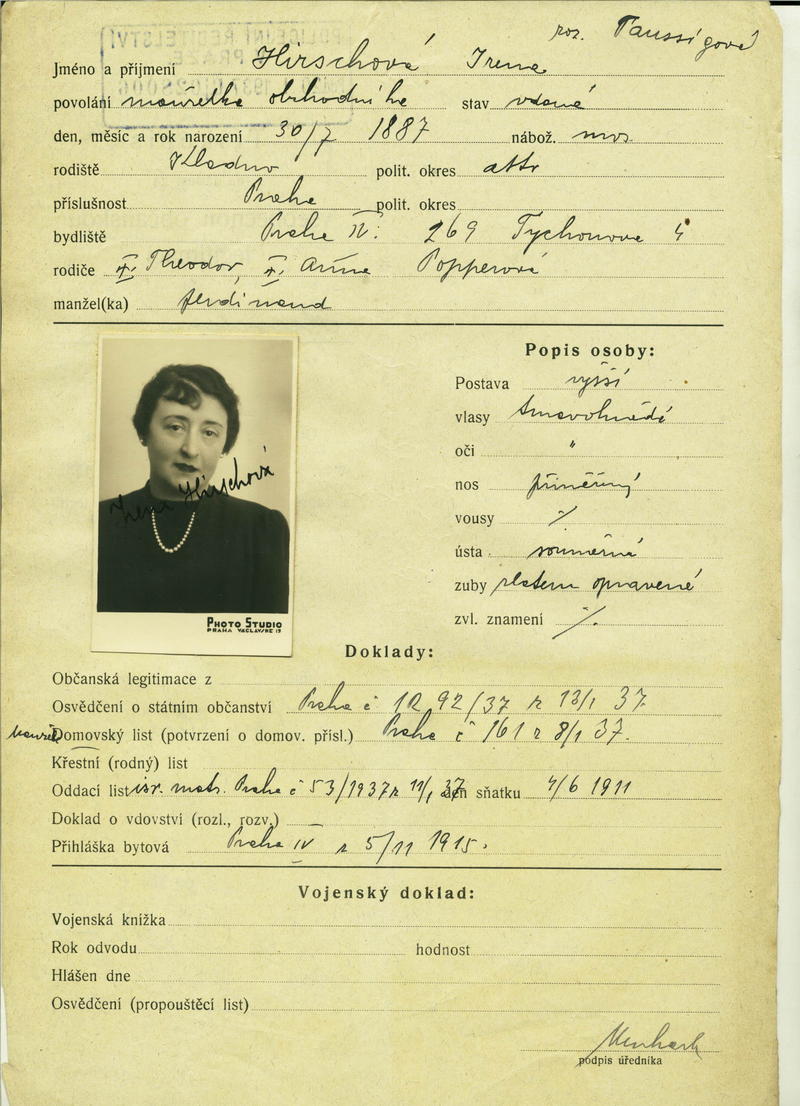 roz. Taussigová
Jméno a příjmení Hirschová Irena
povolání manželka obchodníka stav vdaná
den, měsíc a rok narození 30/7 1887 nábož.
rodiště Kladno polit. okres
příslušnost Praha polit. okres
bydliště Praha IV. 269 Tychonova 4
rodiče Theodor, Anna Popperová
manžel(ka) Ferdinand
Popis osoby:
Postava vyšší
vlasy tmavohnědé
oči "
nos přiměřený
vousy /.
ústa souměrná
zuby zlatem opravené
zvl. znamení /.
Irena Hirschová
PHOTO STUDIO
PRAHA VÁCLAV.NÁM. 19
Doklady:
Občanská legitimace z
Osvědčení o státním občanství Praha č 1292/37 z 13/1 37.
Domovský list (potvrzení o domov. přísl.) Praha č 161 z 8/1 37.
Křestní (rodný) list
Oddací list isr. matr. Praha č 53/1937 z 11/1 37 den sňatku 4/6 1911
Doklad o vdovství (rozl., rozv.) —
Přihláška bytová Praha IV z 5/11 1915.
Vojenský doklad:
Vojenská knížka
Rok odvodu hodnost
Hlášen dne
Osvědčení (propouštěcí list)
podpis úředníka